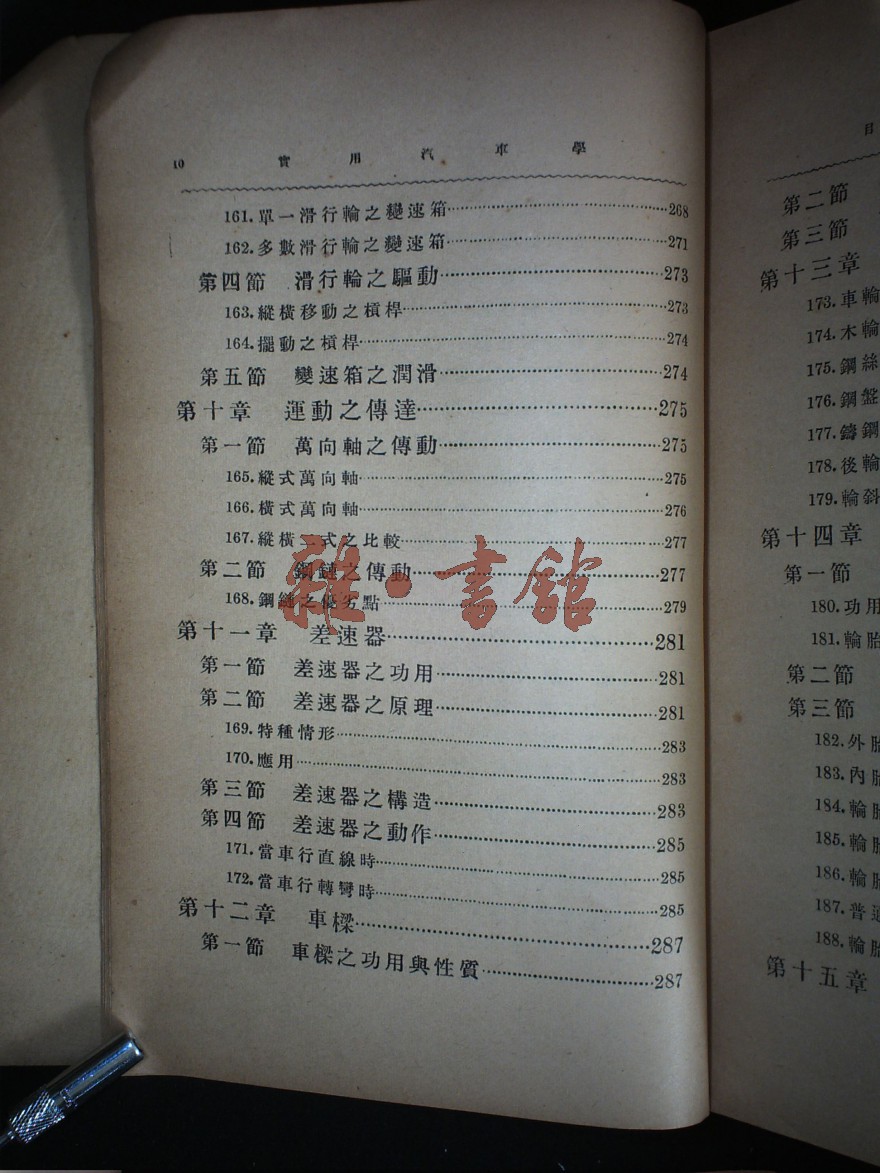 10 實用汽車學
161.單一滑行輪之變速箱 268
162.多數滑行輪之變速箱 271
第四節 滑行輪之驅動 273
163.縱橫移動之槓桿 273
164.擺動之槓桿 274
第五節 變速箱之潤滑 274
第十章 運動之傳達 275
第一節 萬向軸之傳動 275
165.縱式萬向軸 275
166.橫式萬向軸 276
167.縱橫二式之比較 277
第二節 鋼鏈之傳動 277
168.鋼鏈之優劣點 279
第十一章 差速器 281
第一節 差速器之功用 281
第二節 差速器之原理 281
169.特種情形 283
170.應用 283
第三節 差速器之構造 283
第四節 差速器之動作 285
171.當車行直線時 285
172.當車行轉彎時 285
第十二章 車樑 287
第一節 車樑之功用與性質 287
雜·書館
目
第二節
第三節
第十三章
173.車輪
174.木輪
175.鋼絲
176.鋼盤
177.鑄鋼
178.後輪
179.輪斜
第十四章
第一節
180.功用
181.輪胎
第二節
第三節
182.外胎
183.內胎
184.輪胎
185.輪胎
186.輪胎
187.普通
188.輪胎
第十五章